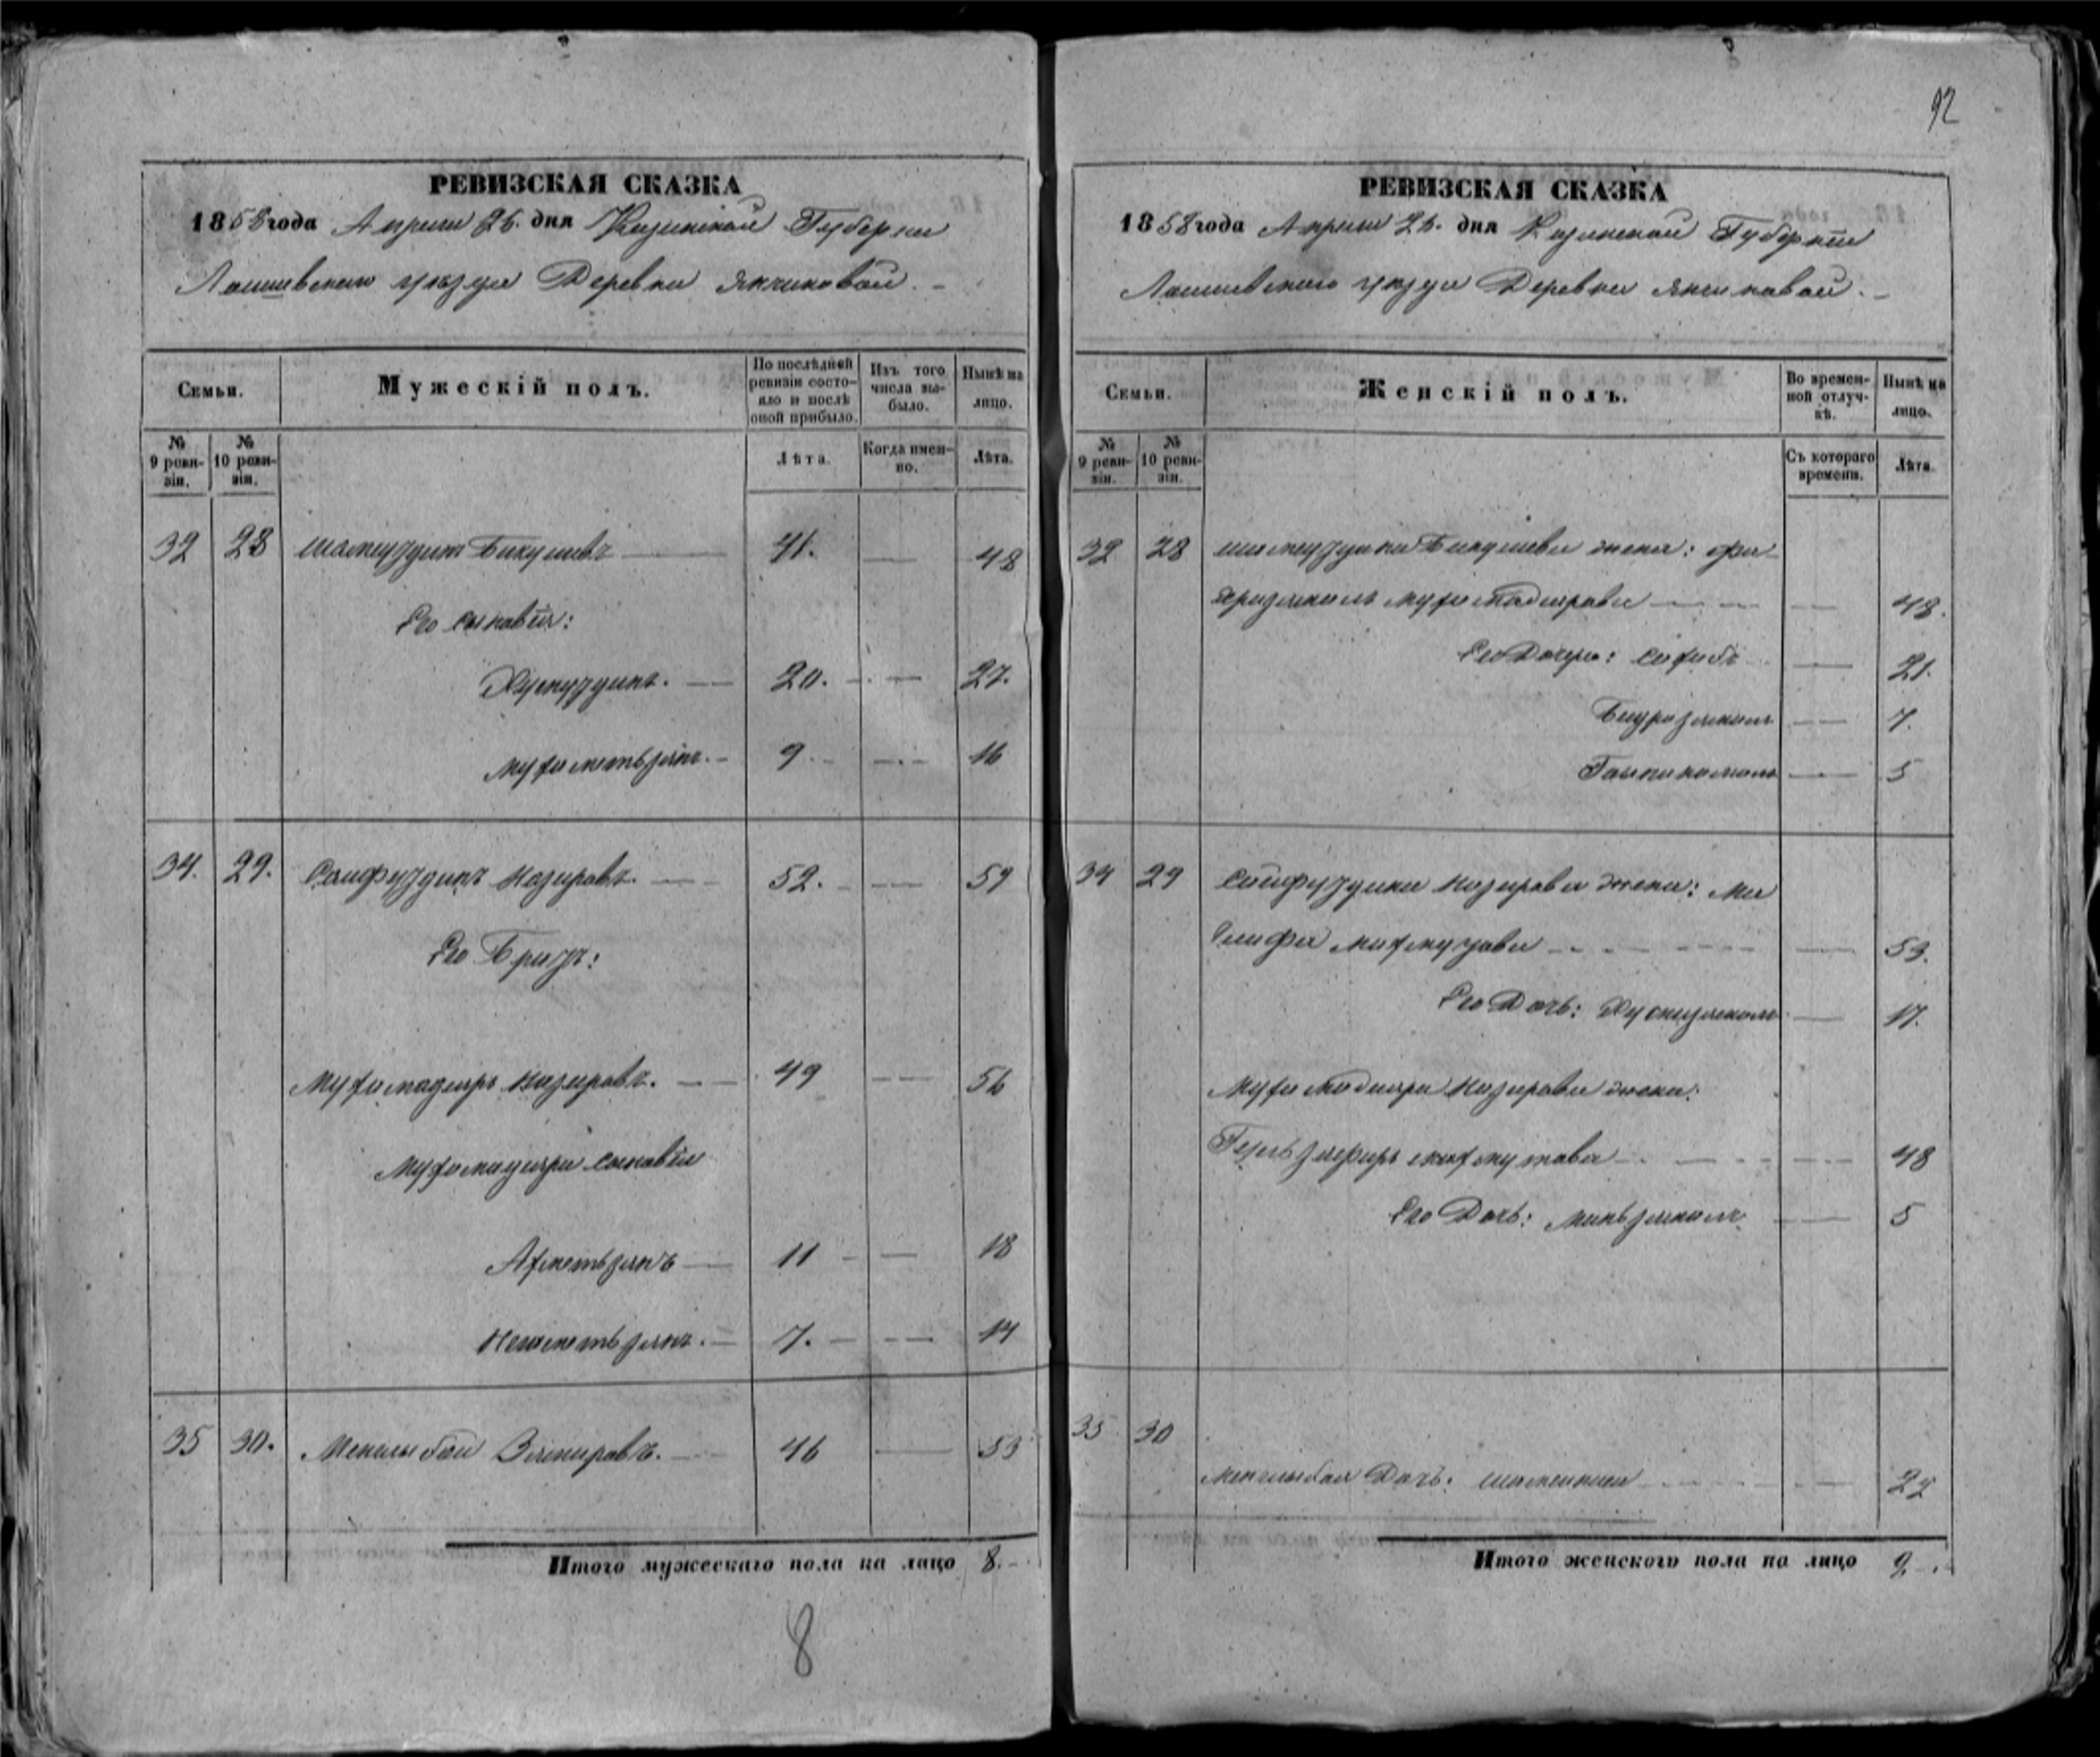 92
РЕВИЗСКАЯ СКАЗКА
1858 года Апреля 26. дня Казанской Губернии
Лаишевскаго уезда Деревни Янчиковой. –
Семьи.
Мужескій полъ.
По послѣдней ревизіи состояло и послѣ оной прибыло.
Изъ того числа выбыло.
Нынѣ на лицо.
№ 9 ревизіи.
№ 10 ревизіи.
Лѣта.
Когда именно.
Лѣта.
32 28 Шамсуздинъ Бикушевъ 41. — 48
Его сыновья:
Хуснуздинъ. 20. — 27.
Мухаметьзянъ. 9. — 16
34. 29. Саифуздинъ Назировъ. 52. — 59
Его Братъ:
Мухамадияръ Назировъ. 49 — 56
Мухамадияра сыновья
Ахметьзянъ 11 — 18
Неаметьзянъ. 7. — 14
35 30. Менглыбай Замировъ. 46 — 53
Итого мужескаго пола на лицо 8.
8
РЕВИЗСКАЯ СКАЗКА
1858 года Апреля 26. дня Казанской Губерніи
Лаишевскаго уезда Деревни Янчиковой. –
Семьи.
Женскій полъ.
Во временной отлучкѣ.
Нынѣ на лицо.
№ 9 ревизіи.
№ 10 ревизіи.
Съ котораго времени.
Лѣта.
32 28 Шамсуздина Бикушева жена: Фа-
Мухамадиярова — 48.
Его Дочери: 21.
7.
5
34 29 Сайфуздина Назирова жена: Ма
Махмутова — 53.
Его Дочь: Хуснизямалъ — 17.
Мухамадияра Назирова жена:
Гульзяфиръ Махмутова — 48
Его Дочь: Миньзямалъ — 5
35 30
Менглыбая Дочь:
Итого женскаго пола на лицо 9.